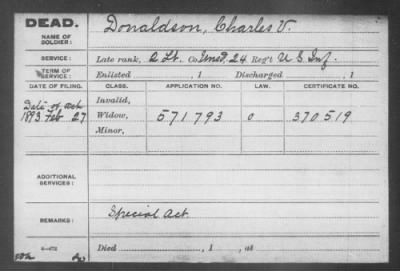 DEAD. Donaldson, Charles V.
NAME OF SOLDIER:
SERVICE: Late rank, 2 Lt. Co. Unasd, 24 Reg't U S Inf.
TERM OF SERVICE: Enlisted , 1 Discharged , 1
DATE OF FILING. CLASS. APPLICATION NO. LAW. CERTIFICATE NO.
Date of act Invalid,
1893 Feb 27 Widow, 571793 0 370519
Minor,
ADDITIONAL SERVICES:
REMARKS: Special Act.
Died , 1 , at